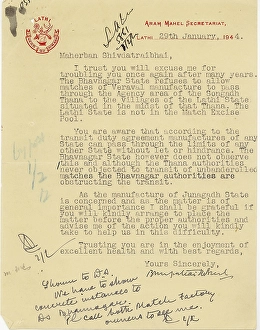 LATHI
ARAM MAHEL SECRETARIAT,
LATHI 29th January, 1944.
Maherban Shivostraibhai,
I trust you will excuse me for
troubling you once again after many years.
The Bhavnagar State refuses to allow
matches of Veraval manufacture to pass
through the Agency area of the Songadh
Thana to the villages of the Lathi State
situated in the midst of that Thana.
Lathi State is not in the Match Excise
Pool.
You are aware that according to the
transit duty agreement manufactures of any
State can pass through the limits of any
other State without let or hindrance. The
Bhavnagar State however does not observe
this and although the Thana authorities
never objected to transit of unbonded
matches the Bhavnagar authorities are
obstructing the transit.
As the manufacture is of Junagadh State
is concerned and as the matter is of
general importance I shall be grateful if
you will kindly arrange to place the
matter before the proper authorities and
advise me of the action you will kindly
take to help us in this difficulty.
Trusting you are in the enjoyment of
excellent health and with best regards,
Yours Sincerely,
Shown to D.A.
We have to show
concrete instances to
Bhavnagar.
Pl call for the Match Factory
owners to see me.